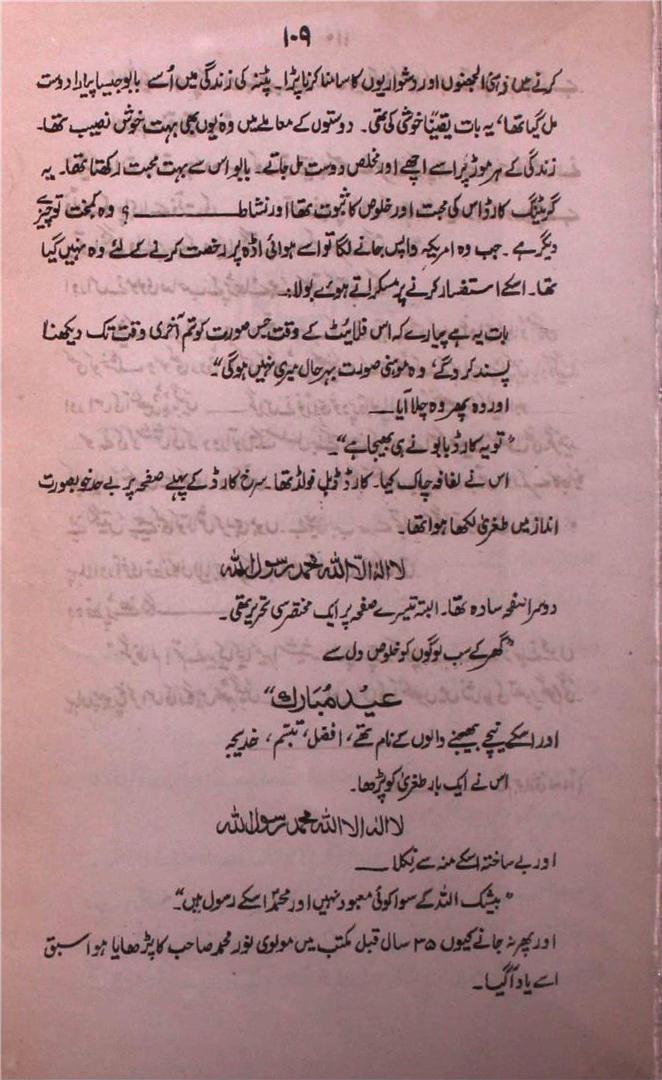 ۱۰۹
کرنے میں ذہنی الجھنوں اور دشواریوں کا سامنا کرنا پڑا۔ پٹنہ کی زندگی میں اُسے بابو جیسا پیارا دوست
مل گیا تھا، یہ بات یقیناً خوشی کی تھی۔ دوستوں کے معاملے میں وہ یوں بھی بہت خوش نصیب تھا۔
زندگی کے ہر موڑ پر اسے اچھے اور مخلص دوست مل جاتے۔ بابو اس سے بہت محبت رکھتا تھا۔ یہ
گریٹنگ کارڈ اس کی محبت اور خلوص کا ثبوت تھا اور نشاط ــــــــــ ؟ وہ کمبخت تو چیز
دیگر ہے۔ جب وہ امریکہ واپس جانے لگا تو اسے ہوائی اڈہ پر رخصت کرنے کے لئے وہ نہیں گیا
تھا۔ اسکے استفسار کرنے پر مسکراتے ہوئے بولا:
بات یہ ہے پیارے کہ اس فلائٹ کے وقت جس صورت کو تم آخری وقت تک دیکھنا
پسند کروگے، وہ موہنی صورت بہرحال میری نہیں ہوگی"۔
اور وہ پھر وہ چلا آیا ــــ
"تو یہ کارڈ بابو نے ہی بھیجا ہے"۔
اس نے لفافہ چاک کیا۔ کارڈ ڈبل فولڈ تھا۔ سرخ کارڈ کے پہلے صفحہ پر بے حد خوبصورت
انداز میں طغریٰ لکھا ہوا تھا۔
لا الہ الا اللہ محمد رسول اللہ
دوسرا صفحہ سادہ تھا۔ البتہ تیسرے صفحہ پر ایک مختصر سی تحریر تھی۔
"گھر کے سب لوگوں کو خلوص دل سے
عید مُبارک"
اور اسکے نیچے بھیجنے والوں کے نام تھے، افضل، تبسم، خدیجہ
اس نے ایک بار طغریٰ کو پڑھا۔
لا الہ الا اللہ محمد رسول اللہ
اور بے ساختہ اسکے منہ سے نکلا ــــ
"بیشک اللہ کے سوا کوئی معبود نہیں اور محمدؐ اسکے رسول ہیں"۔
اور پھر نہ جانے کیوں ۳۵ سال قبل مکتب میں مولوی نور محمد صاحب کا پڑھایا ہوا سبق
اسے یاد آگیا۔